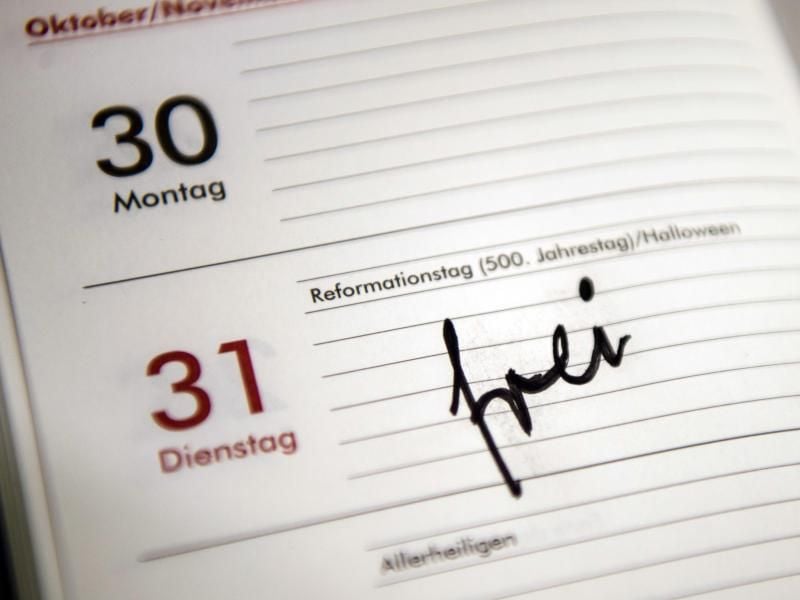 Oktober/November
30
Montag
Reformationstag (500. Jahrestag)/Halloween
31
Dienstag
frei
Allerheiligen